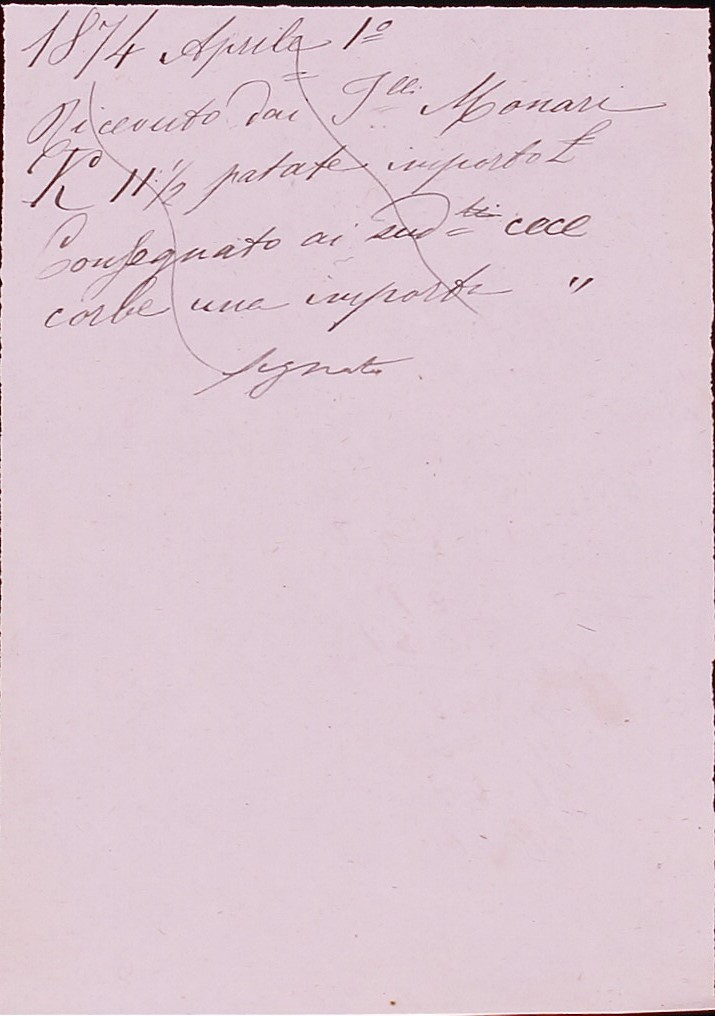 1874 Aprile 1º
Ricevuto dai F.lli Monari
K 11 1/2 patate importo £
Consegnato ai sud.tti cece
corbe una importa "
segnato